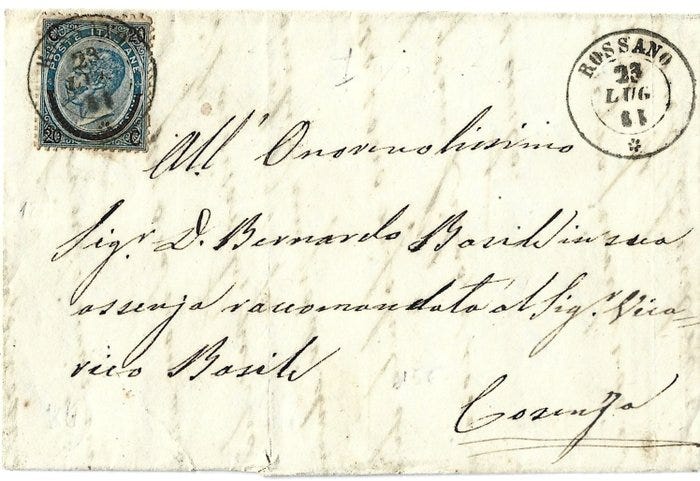 POSTE ITALIANE
20 20
23
LUG
ROSSANO
23
LUG
All' Onorevolissimo
Sigr. D. Bernardo Basile in sua
assenza raccomandata al Sigr. Vica-
rico Basile
Cosenza